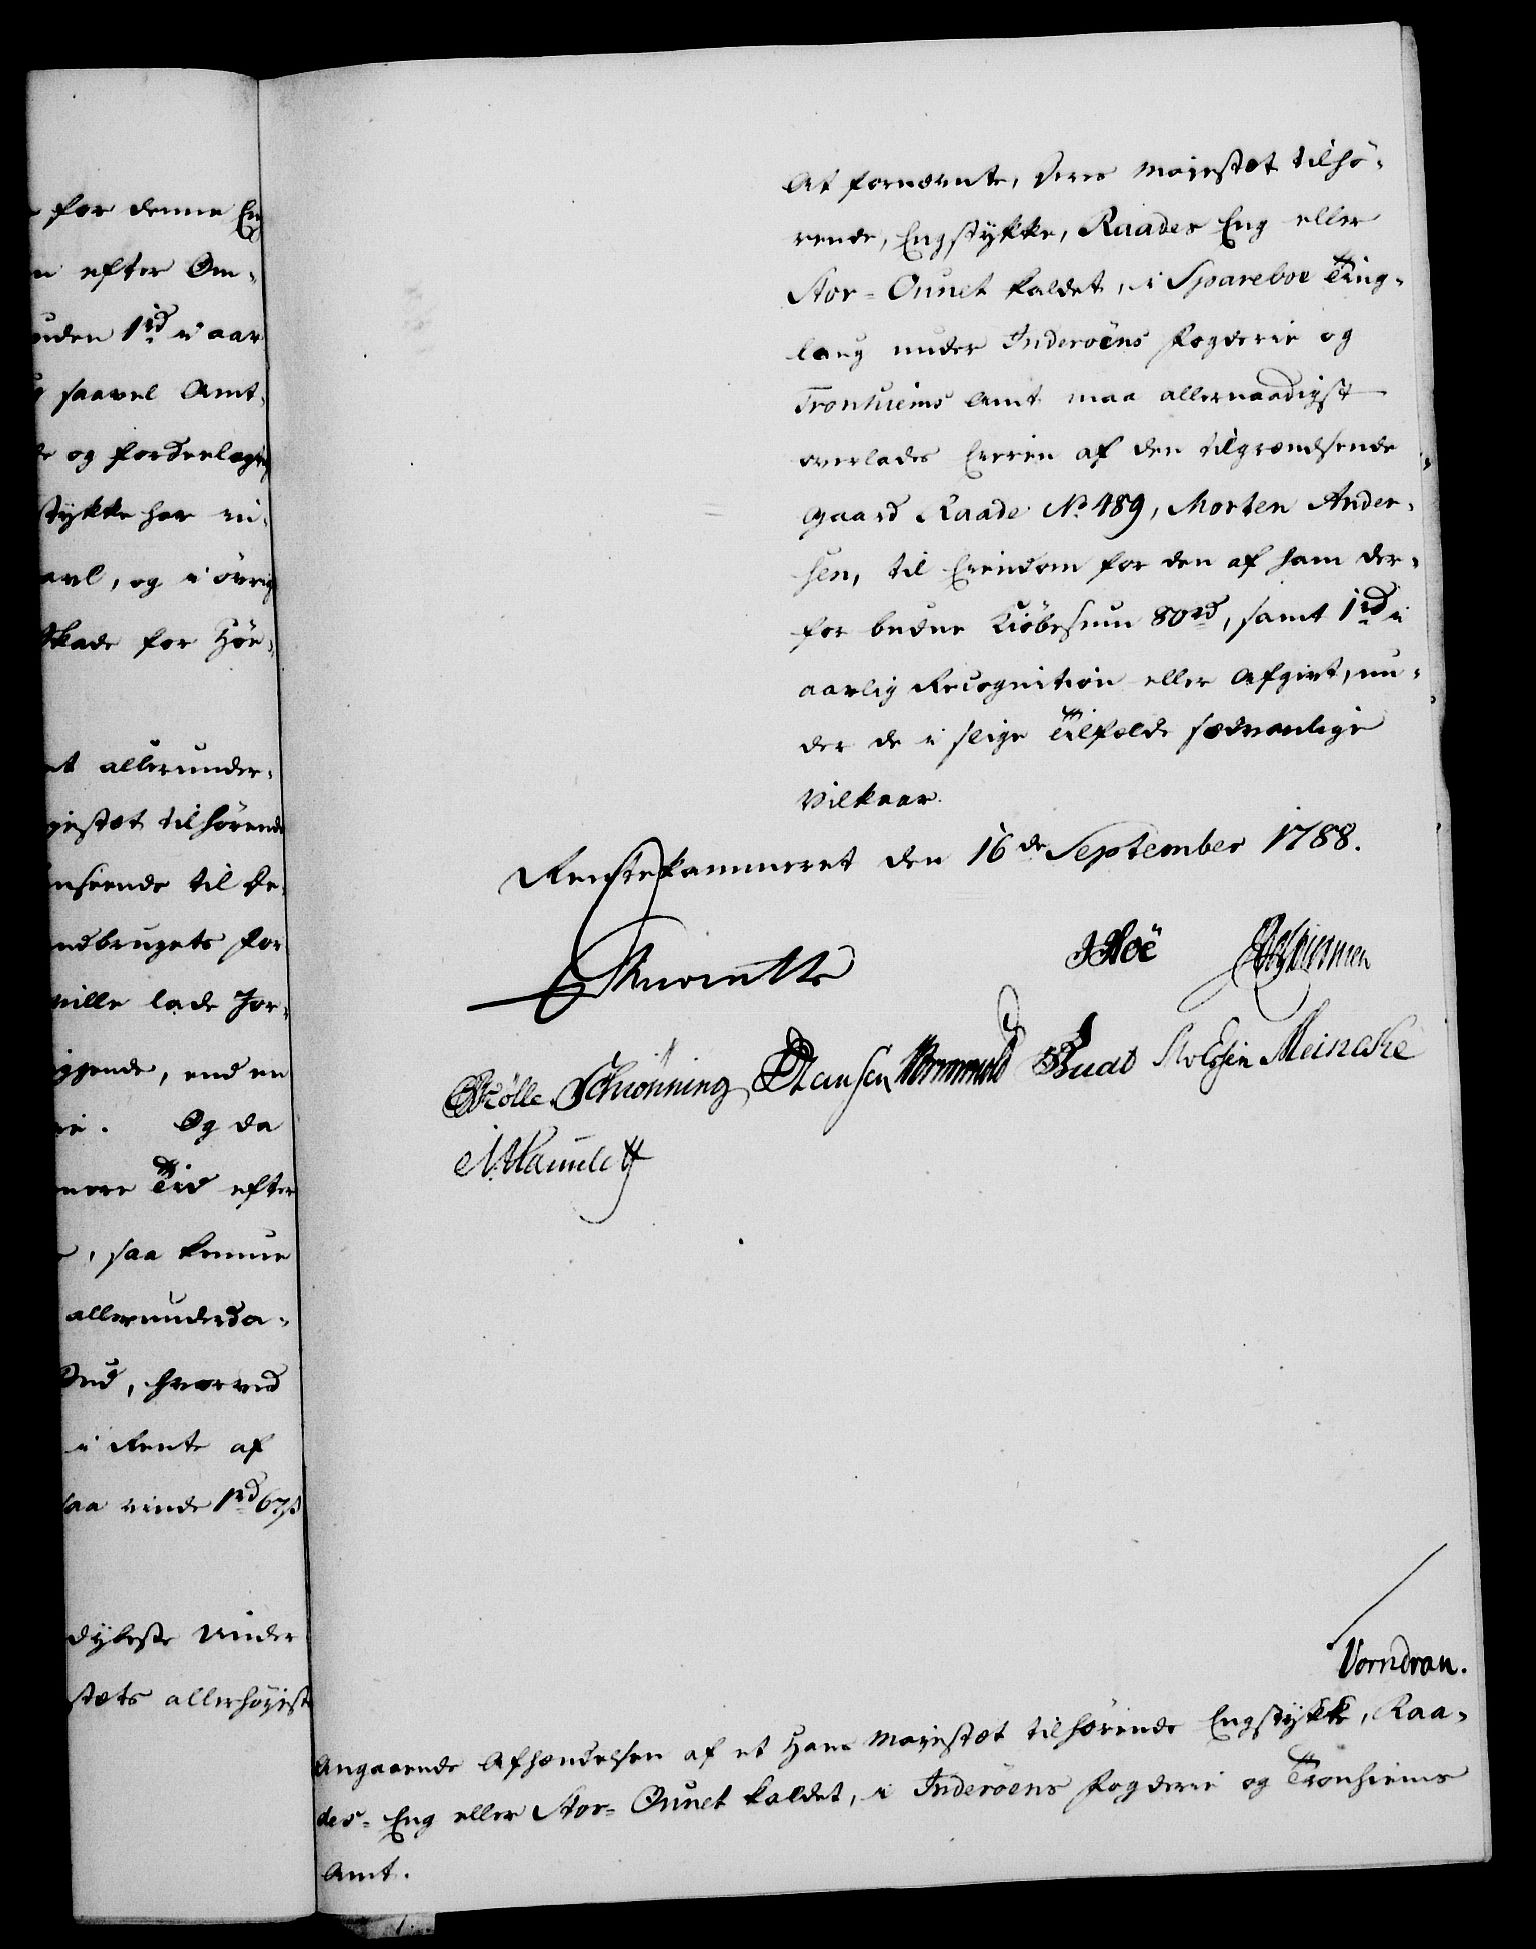 for denne En
n efter Om-
uden 1 rd i aar
saavel Amt-
de og forderlagtig
stykke har vi-
avl, og i övrig
Skade for Hör-
et allerunder-
jestæt tilhörende
nseende til Be-
ndbrugets for
ville lade Jor-
iggende, end en
Og da
mere Tid efter
, saa kunne
allerunderda-
Bud, hvorved
i Rente af
saa vinde 1 rd 67 ß
dybeste Under
stæts allerhöyeste
At fornævnte, Deres Majestæt tilhö-
rende, Engstykke, Raades Eng eller
Stor-Ounet kaldet, i Spareboe Ting-
laug under Inderöens Fogderie og
Tronhiems Amt maa allernaadigst
overlades Eieren af den tilgrændsende
Gaard Raade No 489, Morten Ander-
sen, til Eiendom for den af ham der-
for budne Kiöbesum 80 rd, samt 1 rd i
aarlig Recognition eller Afgivt, un-
der de i slige Tilfælde sædvanlige
Vilkaar.
Rentekammeret den 16de September 1788.
JHoë
Schiønning Hansen Wormwold Buat Meincke
Vorndran.
Angaaende Afhændelsen af et Hans Majestæt tilhörende Engstykke, Raa-
des-Eng eller Stor-Ounet kaldet, i Inderöens Fogderie og Tronhiems
Amt.